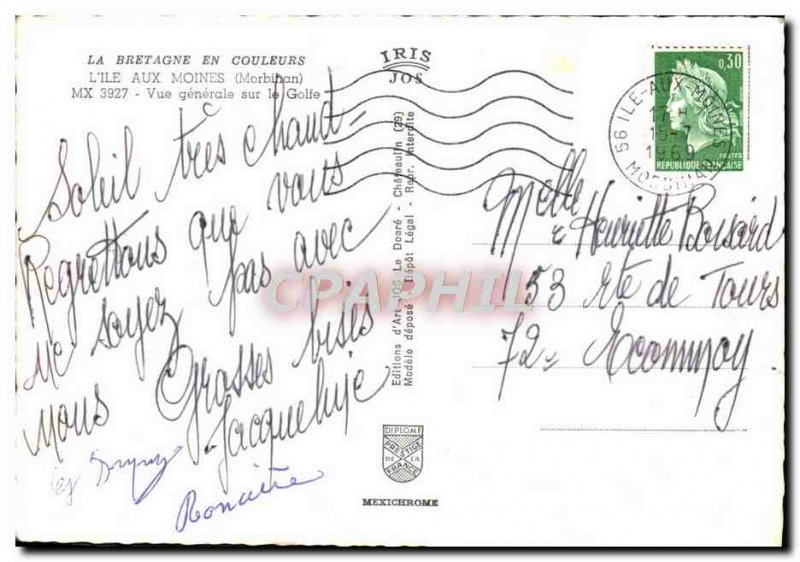 LA BRETAGNE EN COULEURS
L'ILE AUX MOINES (Morbihan)
MX 3927 - Vue générale sur le Golfe
IRIS
JOS
0,30
POSTES
REPUBLIQUE FRANÇAISE
56 ILE-AUX-MOINES
17 H
15-7
1969
MORBIHAN
Soleil très chaud -
Regrettons que vous
ne soyez pas avec
nous Grosses bises
Jacqueline
les
Editions d'Art JOS Le Doaré - Châteaulin (29)
Modèle déposé - Dépôt Légal - Repr. interdite
Melle Henriette
53 Rte de Tours
72 Ecommoy
CPAPHIL
DIPLOME
PRESTIGE
DE LA
FRANCE
MEXICHROME